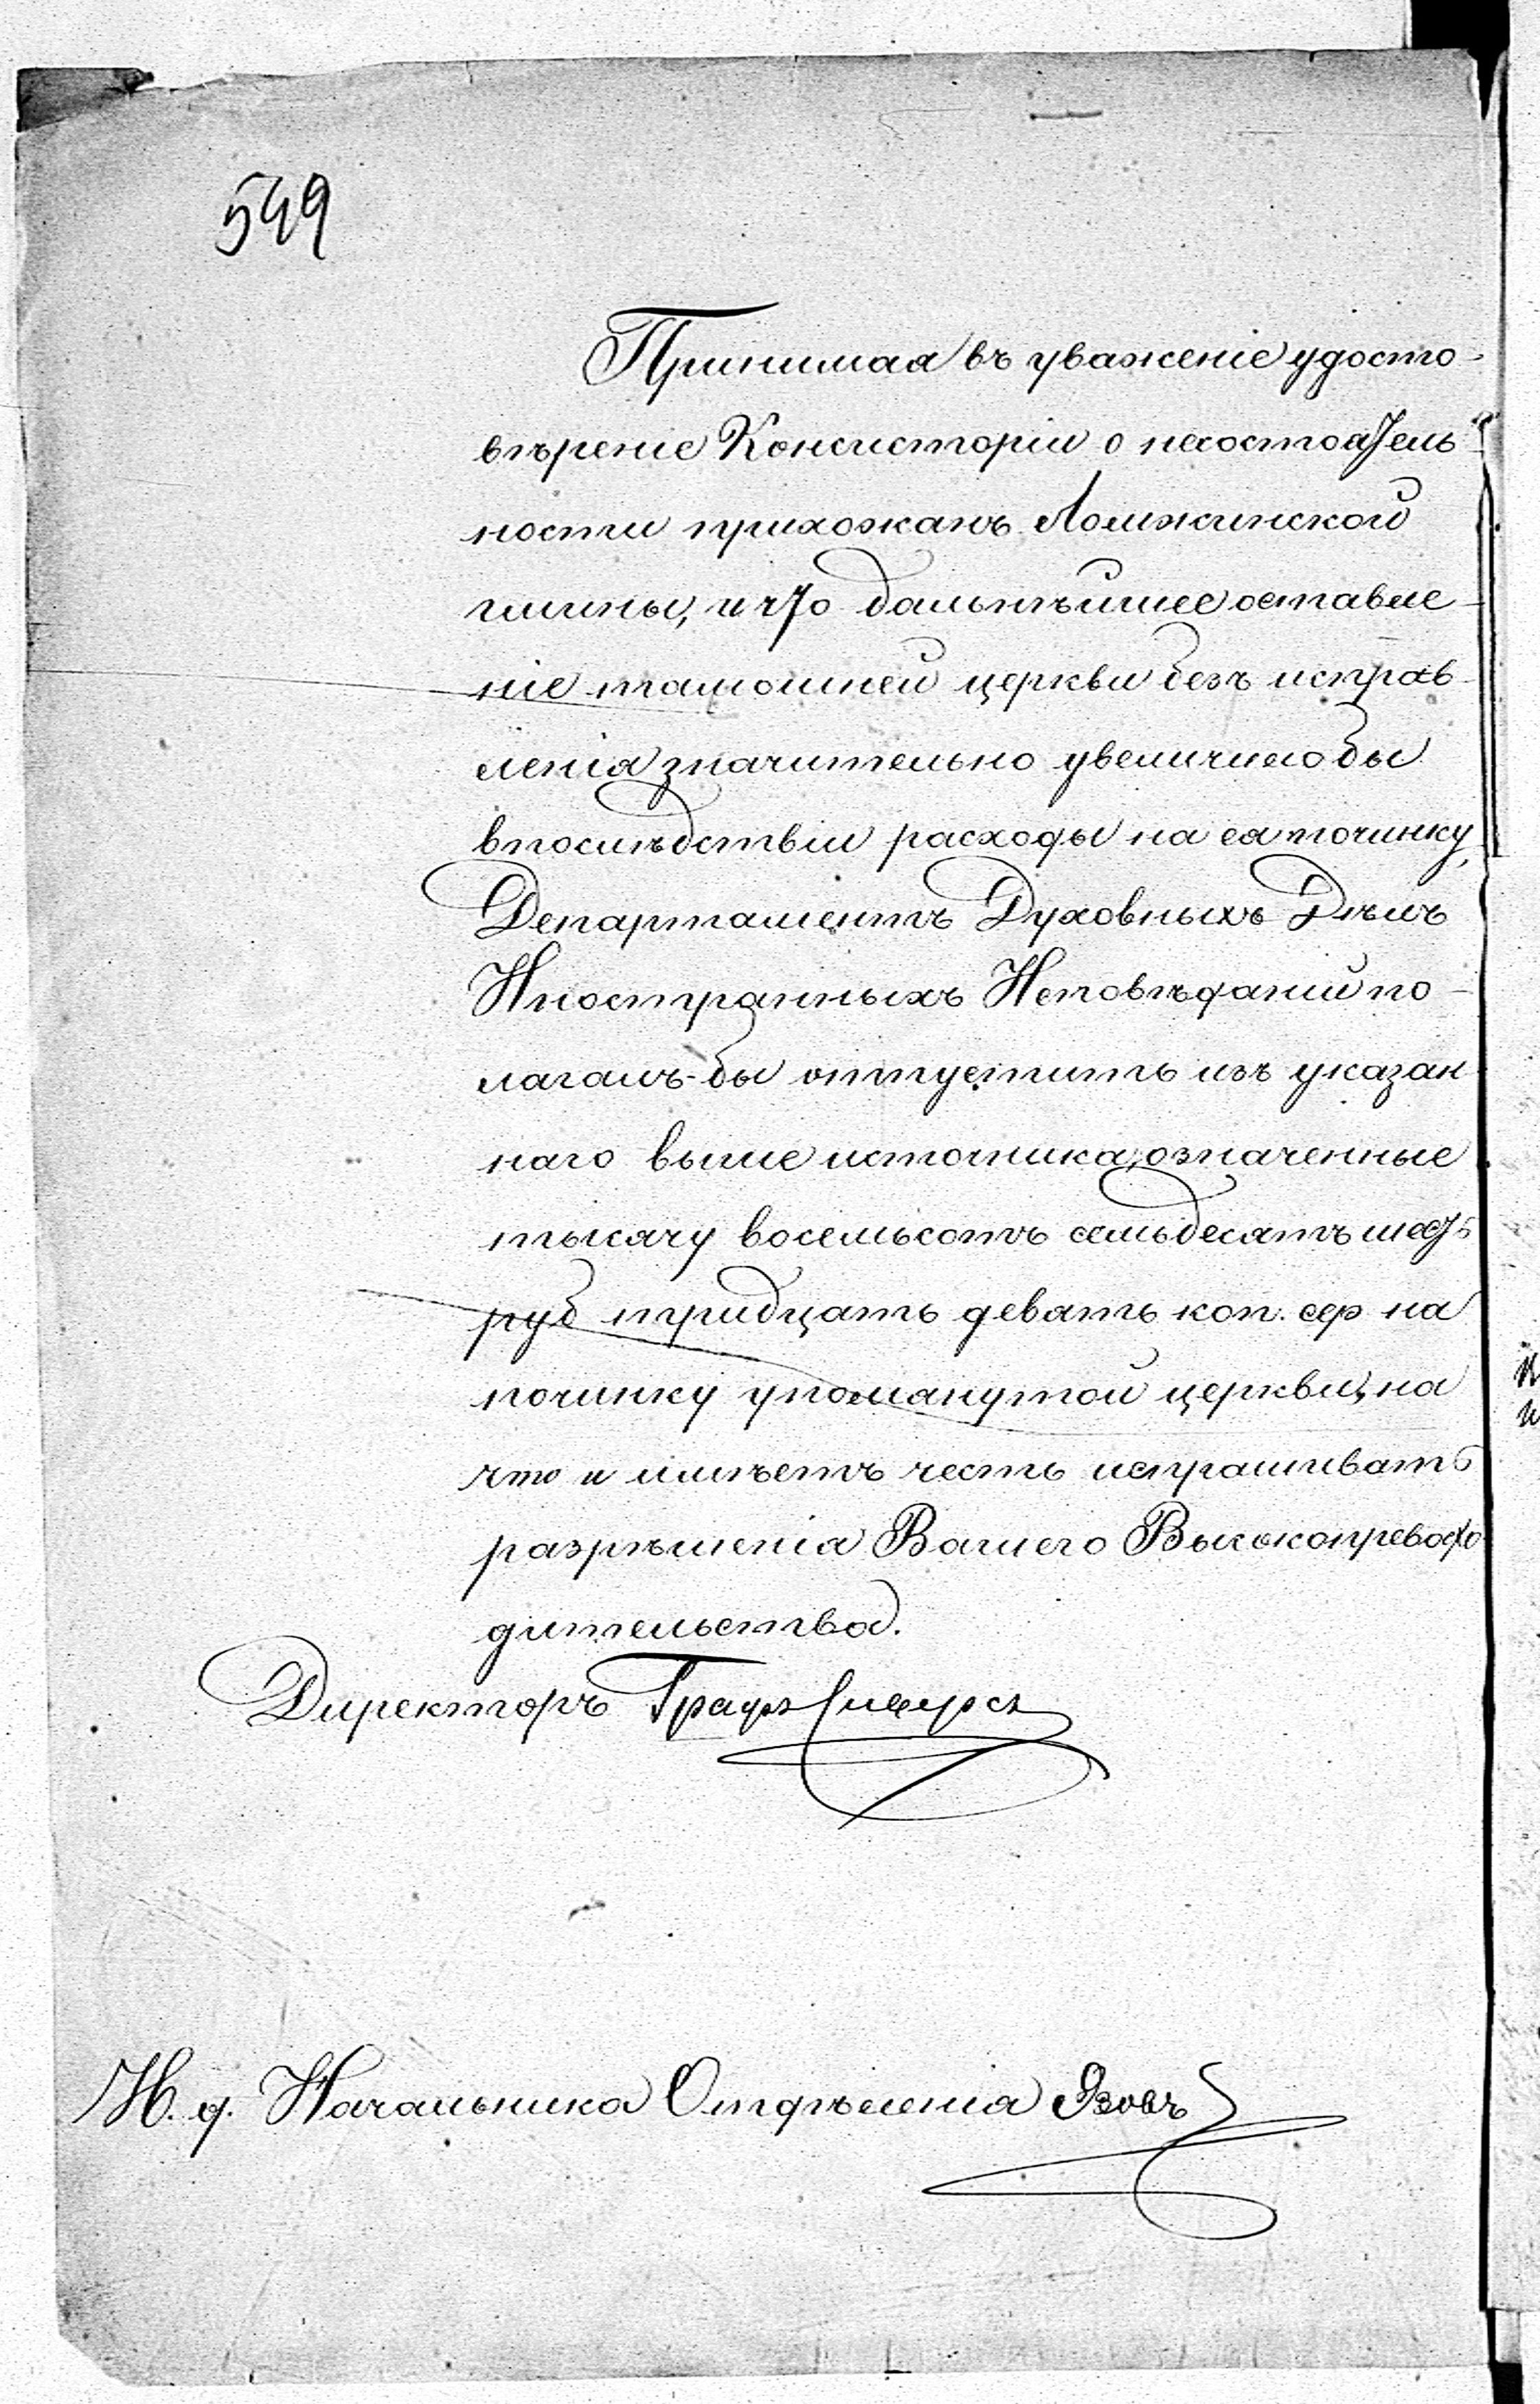 549
Принимая въ уваженіе удосто-
вѣреніе Консисторіи о несостоятель-
ности прихожанъ Ломжинской
гмины, и что дальнѣйшее оставле-
ніе тамошней церкви безъ исправ-
ленія значительно увеличило бы
впослѣдствіи расходы на ея починку,
Департаментъ Духовныхъ Дѣлъ
Иностранныхъ Исповѣданій по-
лагалъ-бы отпустить изъ указан-
наго выше источника, означенные
тысячу восемьсотъ семьдесятъ шесть
руб тридцать девять коп. сер на
починку упомянутой церкви, на
что и имѣетъ честь испрашивать
разрѣшенія Вашего Высокопревосхо-
дительства.
Директоръ Графъ Сиверсъ
И. д. Начальника Отдѣленія Язовъ